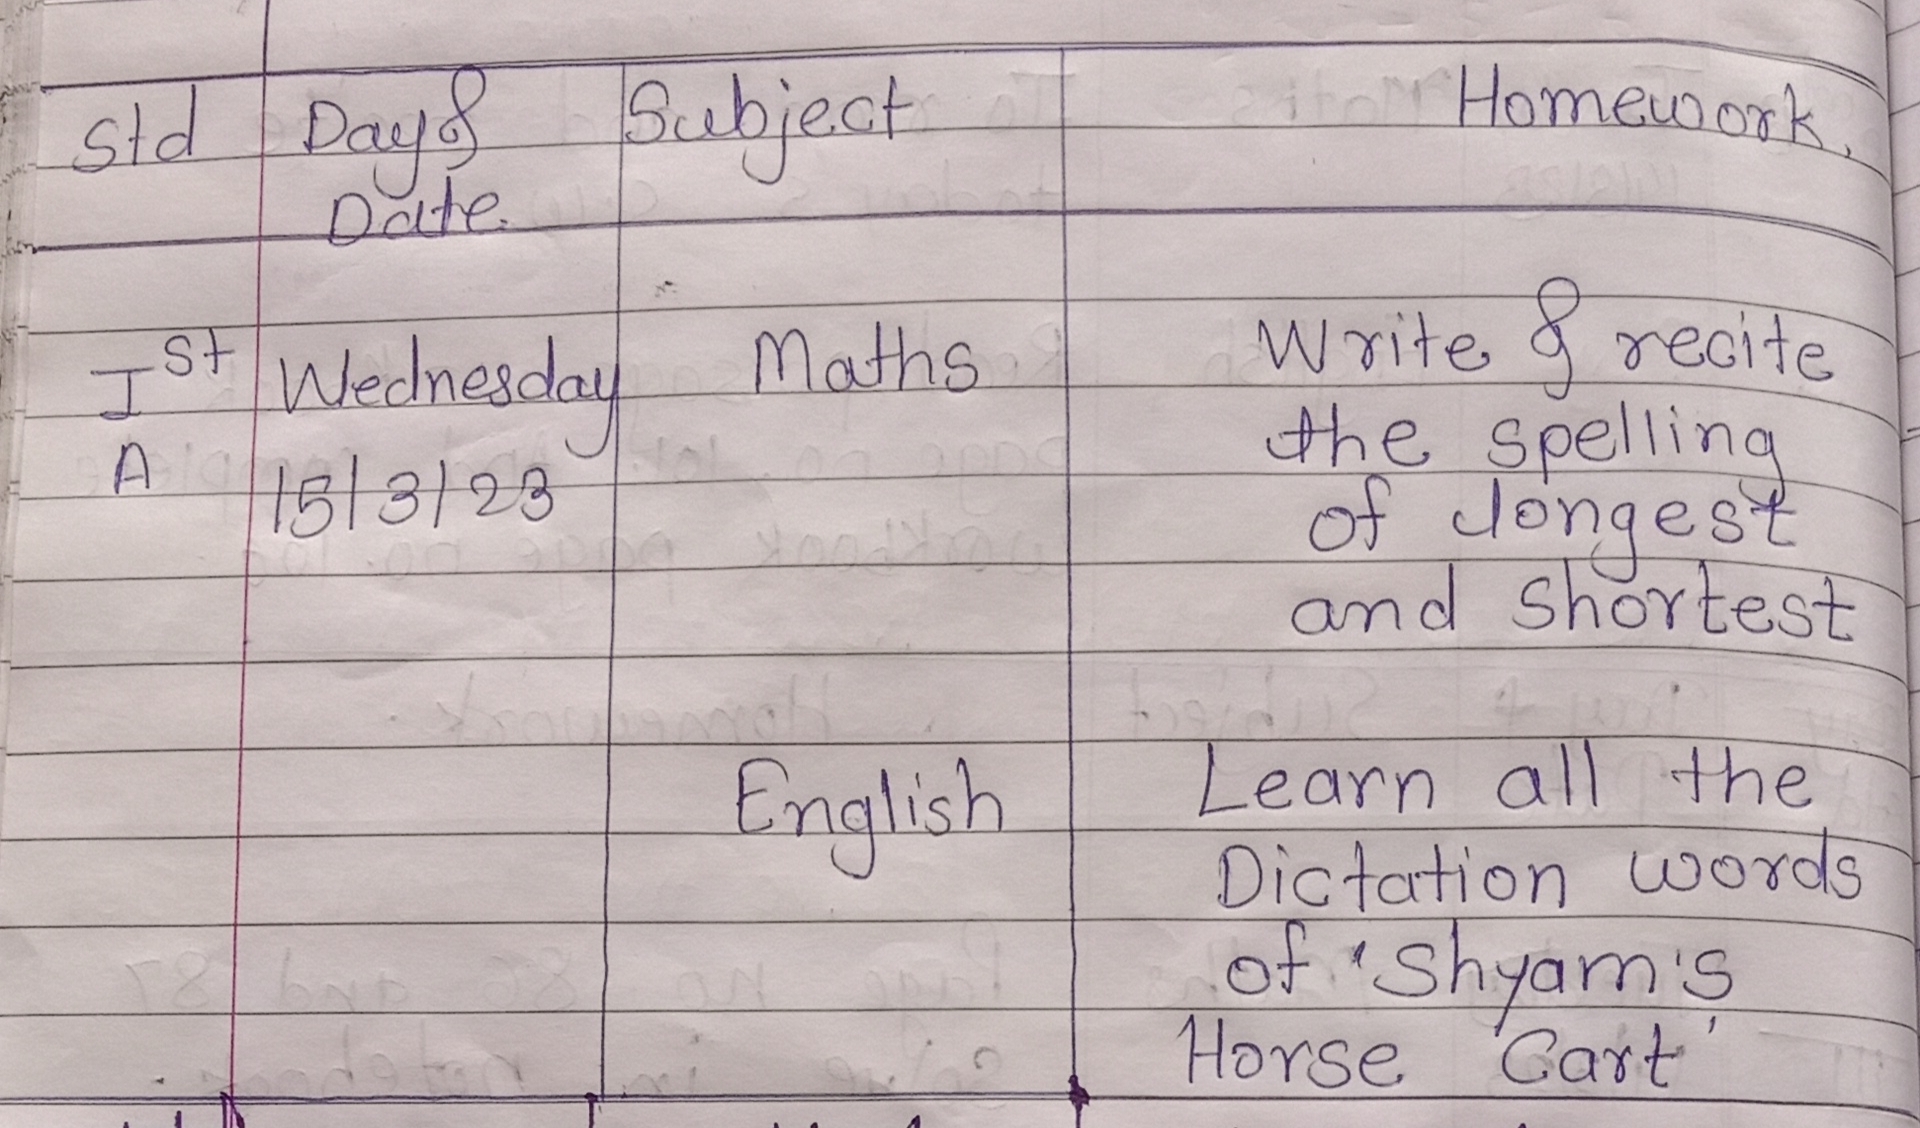 Std Day & Subject Homework.
Date.
Ist Wednesday Maths Write & recite
A 15/3/23 the spelling
of longest
and shortest
English Learn all the
Dictation words
of 'Shyam's
Horse Cart'